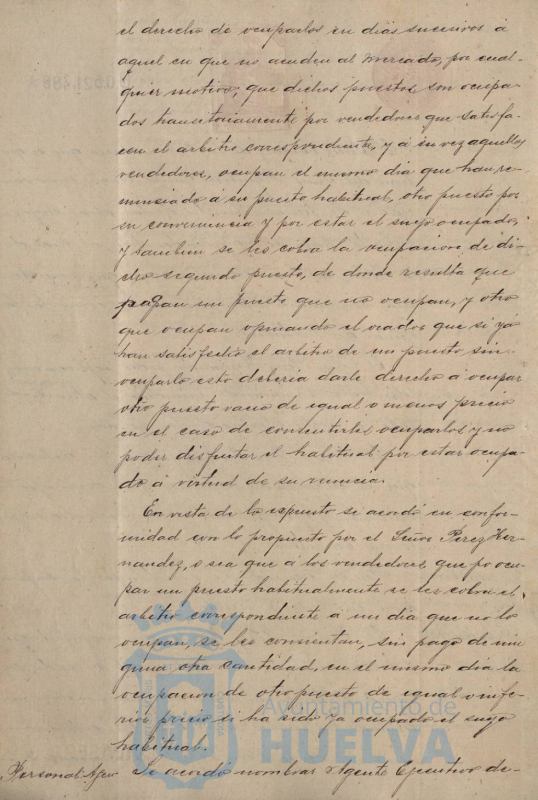 el derecho de ocuparlos en dias sucesivos á
aquel en que no acuden al Mercado, por cual-
quier motivo; que dichos puestos son ocupa-
dos transitoriamente por vendedores que satisfa-
cen el arbitrio correspondiente, y á su vez aquellos
vendedores, ocupan el mismo dia que han re-
nunciado á su puesto habitual, otro puesto por
su conveniencia y por estar el suyo ocupado,
y tambien se les cobra la ocupacion de di-
cho segundo puesto, de donde resulta que
pagan un puesto que no ocupan, y otro
que ocupan opinando el orador que si ya
han satisfecho el arbitrio de un puesto sin
ocuparlo esto deberia darle derecho á ocupar
otro puesto vacio de igual o menos precio
en el caso de consentirles ocuparlos y no
poder disfrutar el habitual por estar ocupa-
do á virtud de su renuncia.
En vista de lo expuesto se acordó en confor-
midad con lo propuesto por el Señor Perez Her-
nandez, o sea que á los vendedores que ocu-
pan un puesto habitualmente se les cobra el
arbitrio correspondiente á un dia que no lo
ocupan, se les consientan, sin pago de nin
guna otra cantidad, en el mismo dia la
ocupacion de otro puesto de igual o infe-
rior precio si ha sido ya ocupado el suyo
habitual.
Personal. Agen Se acordó nombrar Agente Ejecutivo de-
Ayuntamiento de
HUELVA